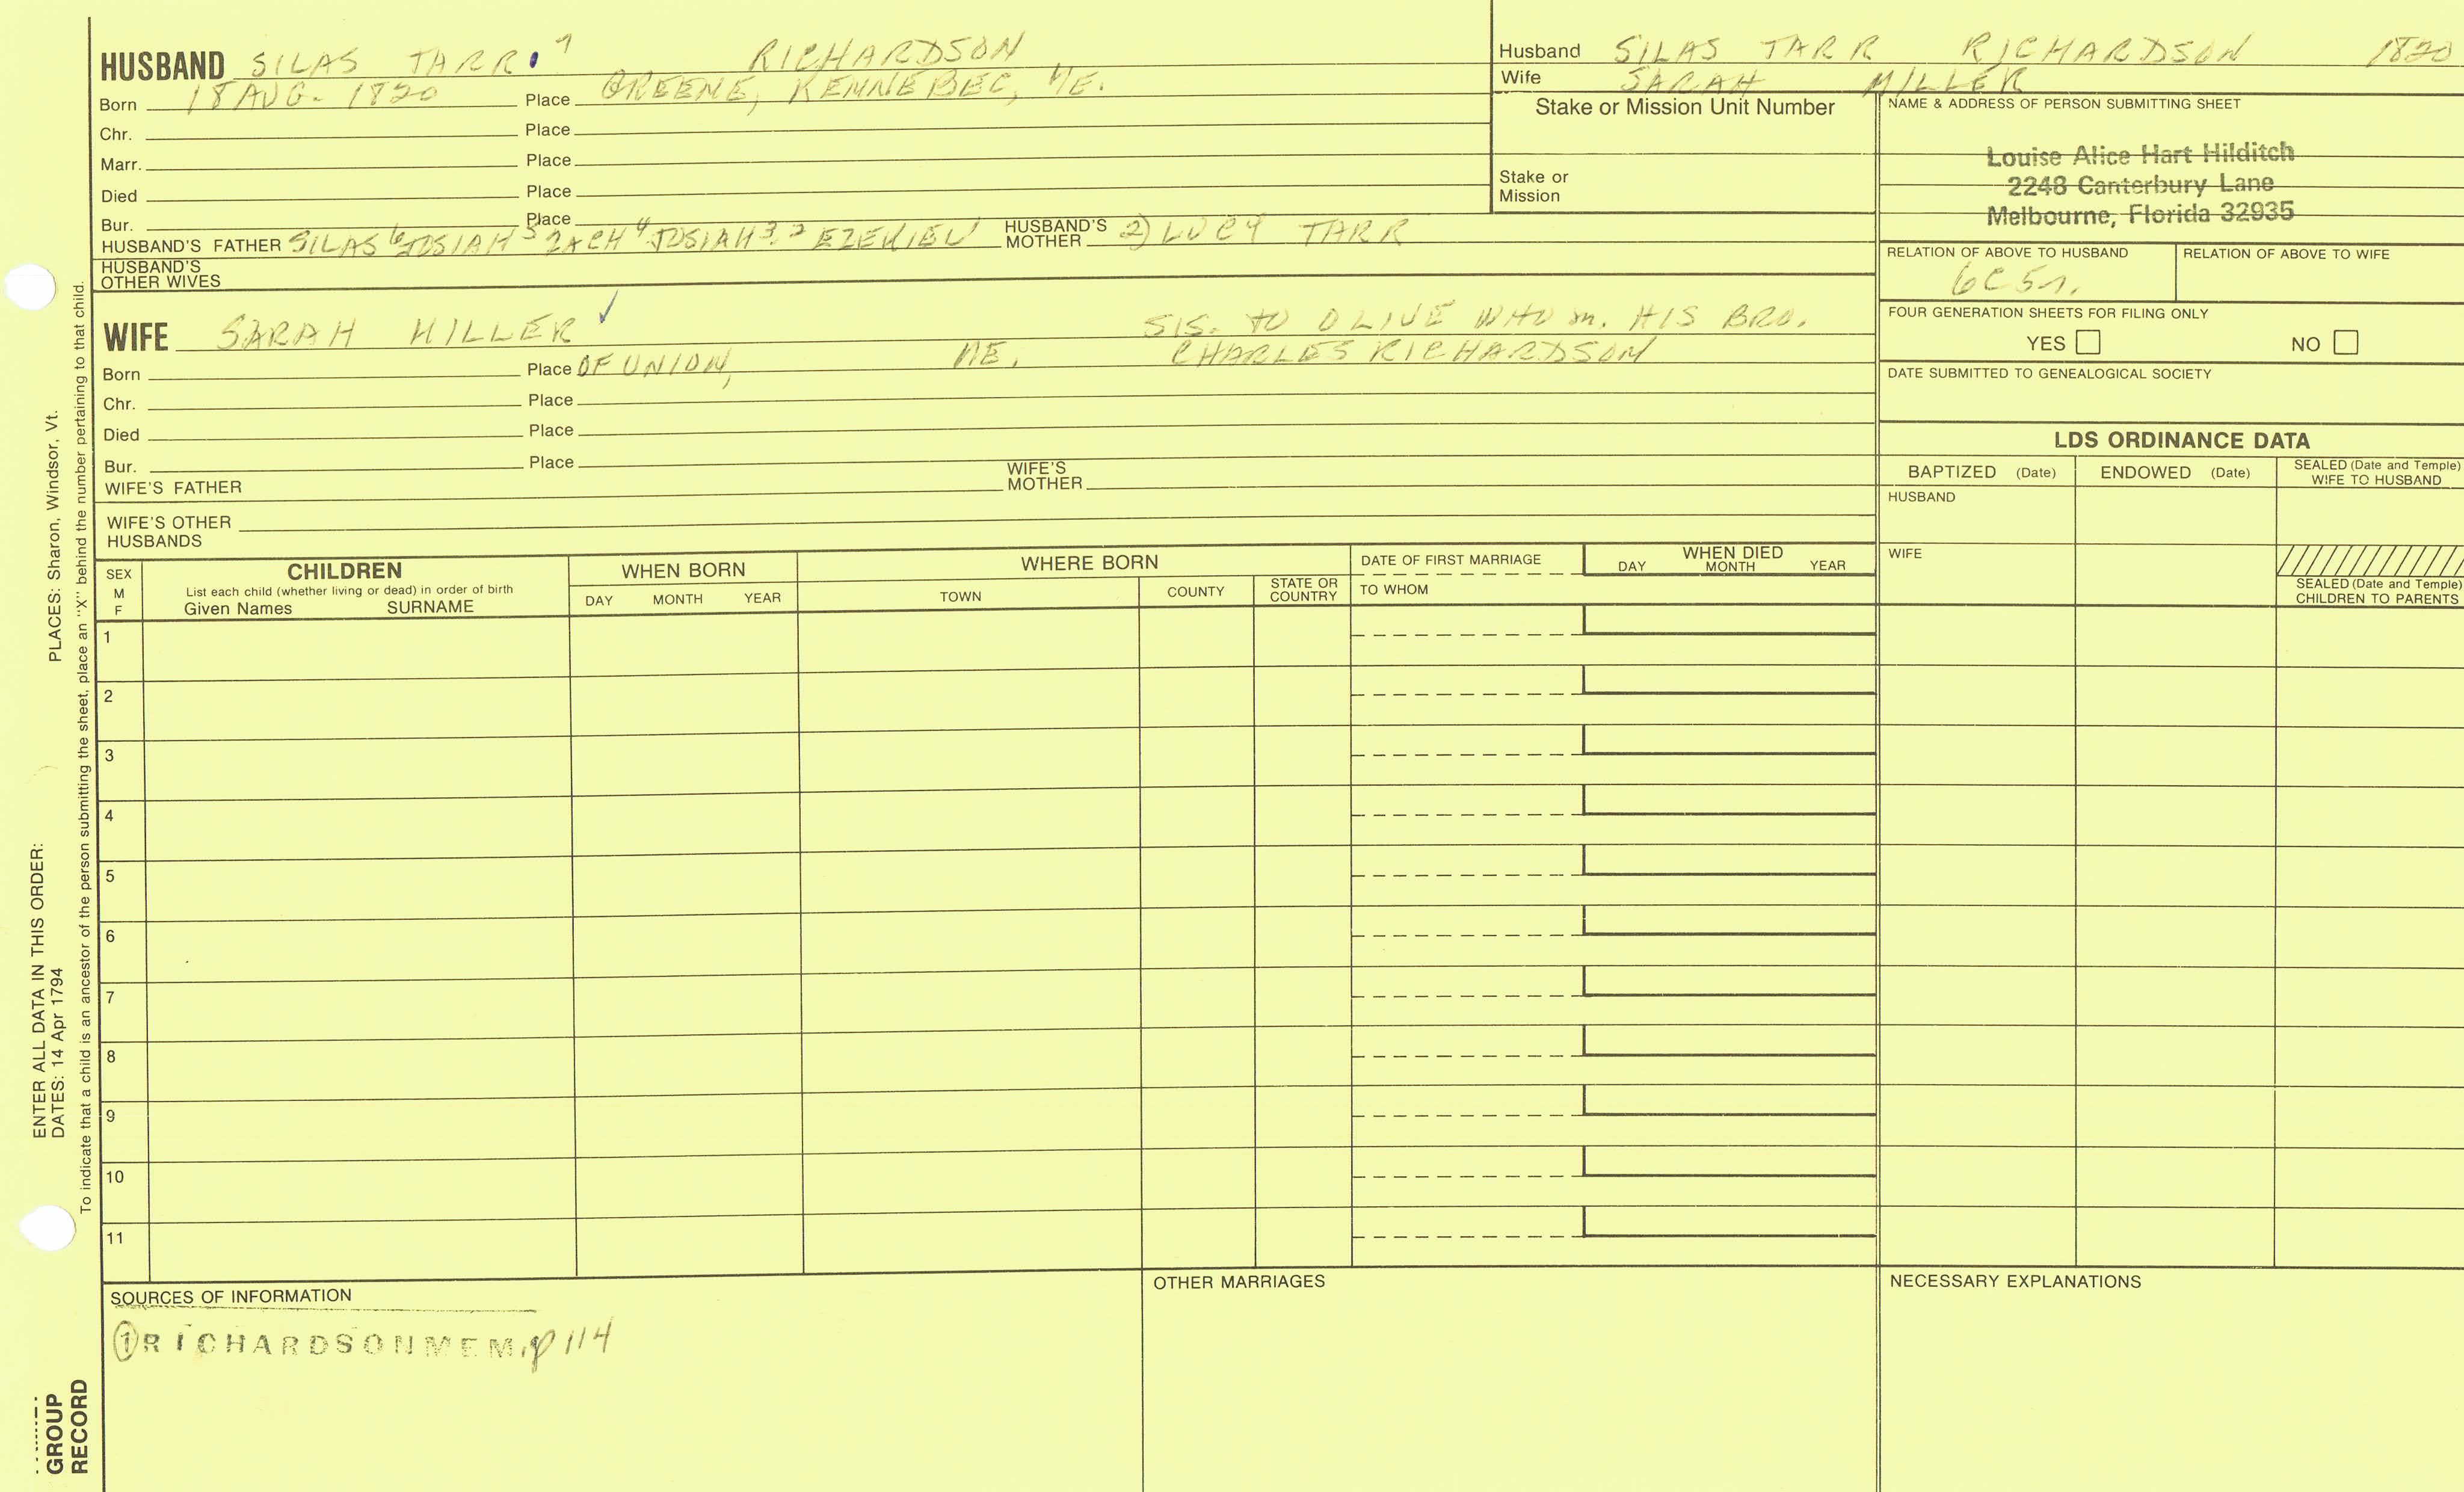 HUSBAND SILAS TARR 7 RICHARDSON
Born 18 AUG. 1820 Place GREENE, KENNEBEC, ME.
Chr. Place
Marr. Place
Died Place
Bur. Place
HUSBAND'S FATHER SILAS 6 JOSIAH 5 ZACH 4 JOSIAH 3, 2 EZEKIEL HUSBAND'S MOTHER 2) LUCY TARR
HUSBAND'S OTHER WIVES
WIFE SARAH MILLER ✓ SIS. TO OLIVE WHO m. HIS BRO.
Born Place OF UNION, ME. CHARLES RICHARDSON
Chr. Place
Died Place
Bur. Place
WIFE'S FATHER WIFE'S MOTHER
WIFE'S OTHER HUSBANDS
Husband SILAS TARR RICHARDSON 1820
Wife SARAH MILLER
Stake or Mission Unit Number
Stake or
Mission
NAME & ADDRESS OF PERSON SUBMITTING SHEET
Louise Alice Hart Hilditch
2248 Canterbury Lane
Melbourne, Florida 32935
RELATION OF ABOVE TO HUSBAND RELATION OF ABOVE TO WIFE
6C5r.
FOUR GENERATION SHEETS FOR FILING ONLY
YES NO
DATE SUBMITTED TO GENEALOGICAL SOCIETY
LDS ORDINANCE DATA
BAPTIZED (Date) ENDOWED (Date) SEALED (Date and Temple) WIFE TO HUSBAND
HUSBAND
WIFE
SEALED (Date and Temple) CHILDREN TO PARENTS
SEX M F
CHILDREN
List each child (whether living or dead) in order of birth
Given Names SURNAME
WHEN BORN
DAY MONTH YEAR
WHERE BORN
TOWN COUNTY STATE OR COUNTRY
DATE OF FIRST MARRIAGE
TO WHOM
WHEN DIED
DAY MONTH YEAR
1
2
3
4
5
6
7
8
9
10
11
SOURCES OF INFORMATION
① RICHARDSON MEM. p 114
OTHER MARRIAGES
NECESSARY EXPLANATIONS
ENTER ALL DATA IN THIS ORDER:
DATES: 14 Apr 1794 PLACES: Sharon, Windsor, Vt.
To indicate that a child is an ancestor of the person submitting the sheet, place an "X" behind the number pertaining to that child.
GROUP
RECORD